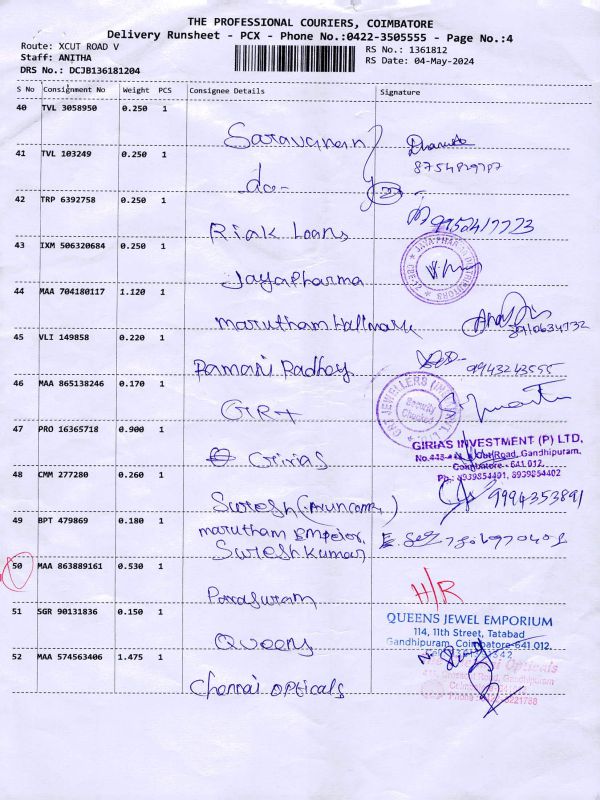 THE PROFESSIONAL COURIERS, COIMBATORE
Delivery Runsheet - PCX - Phone No.:0422-3505555 - Page No.:4
Route: XCUT ROAD V
Staff: ANITHA
DRS No.: DCJB136181204
RS No.: 1361812
RS Date: 04-May-2024
S No Consignment No Weight PCS Consignee Details Signature
40 TVL 3058950 0.250 1
Saravanan
8754829707
41 TVL 103249 0.250 1
do-
2
42 TRP 6392758 0.250 1
Risk Loans
9952417723
43 IXM 506320684 0.250 1
JayaPharma
44 MAA 704180117 1.120 1
marutham Hallmark
45 VLI 149858 0.220 1
Ramani Radhey
9943243555
46 MAA 865138246 0.170 1
GRT
Security
47 PRO 16365718 0.900 1
Girias
GIRIAS INVESTMENT (P) LTD,
Gandhipuram,
Coimbatore - 641 012.
Ph.: 8939854401, 8939854402
48 CMM 277280 0.260 1
Suresh
9994353891
49 BPT 479869 0.180 1
marutham Emperor
Suresh Kumar
50 MAA 863889161 0.530 1
Parasuram
H/R
51 SGR 90131836 0.150 1
Queens
QUEENS JEWEL EMPORIUM
114, 11th Street, Tatabad
Gandhipuram, Coimbatore-641 012.
52 MAA 574563406 1.475 1
Chennai opticals
Opticals